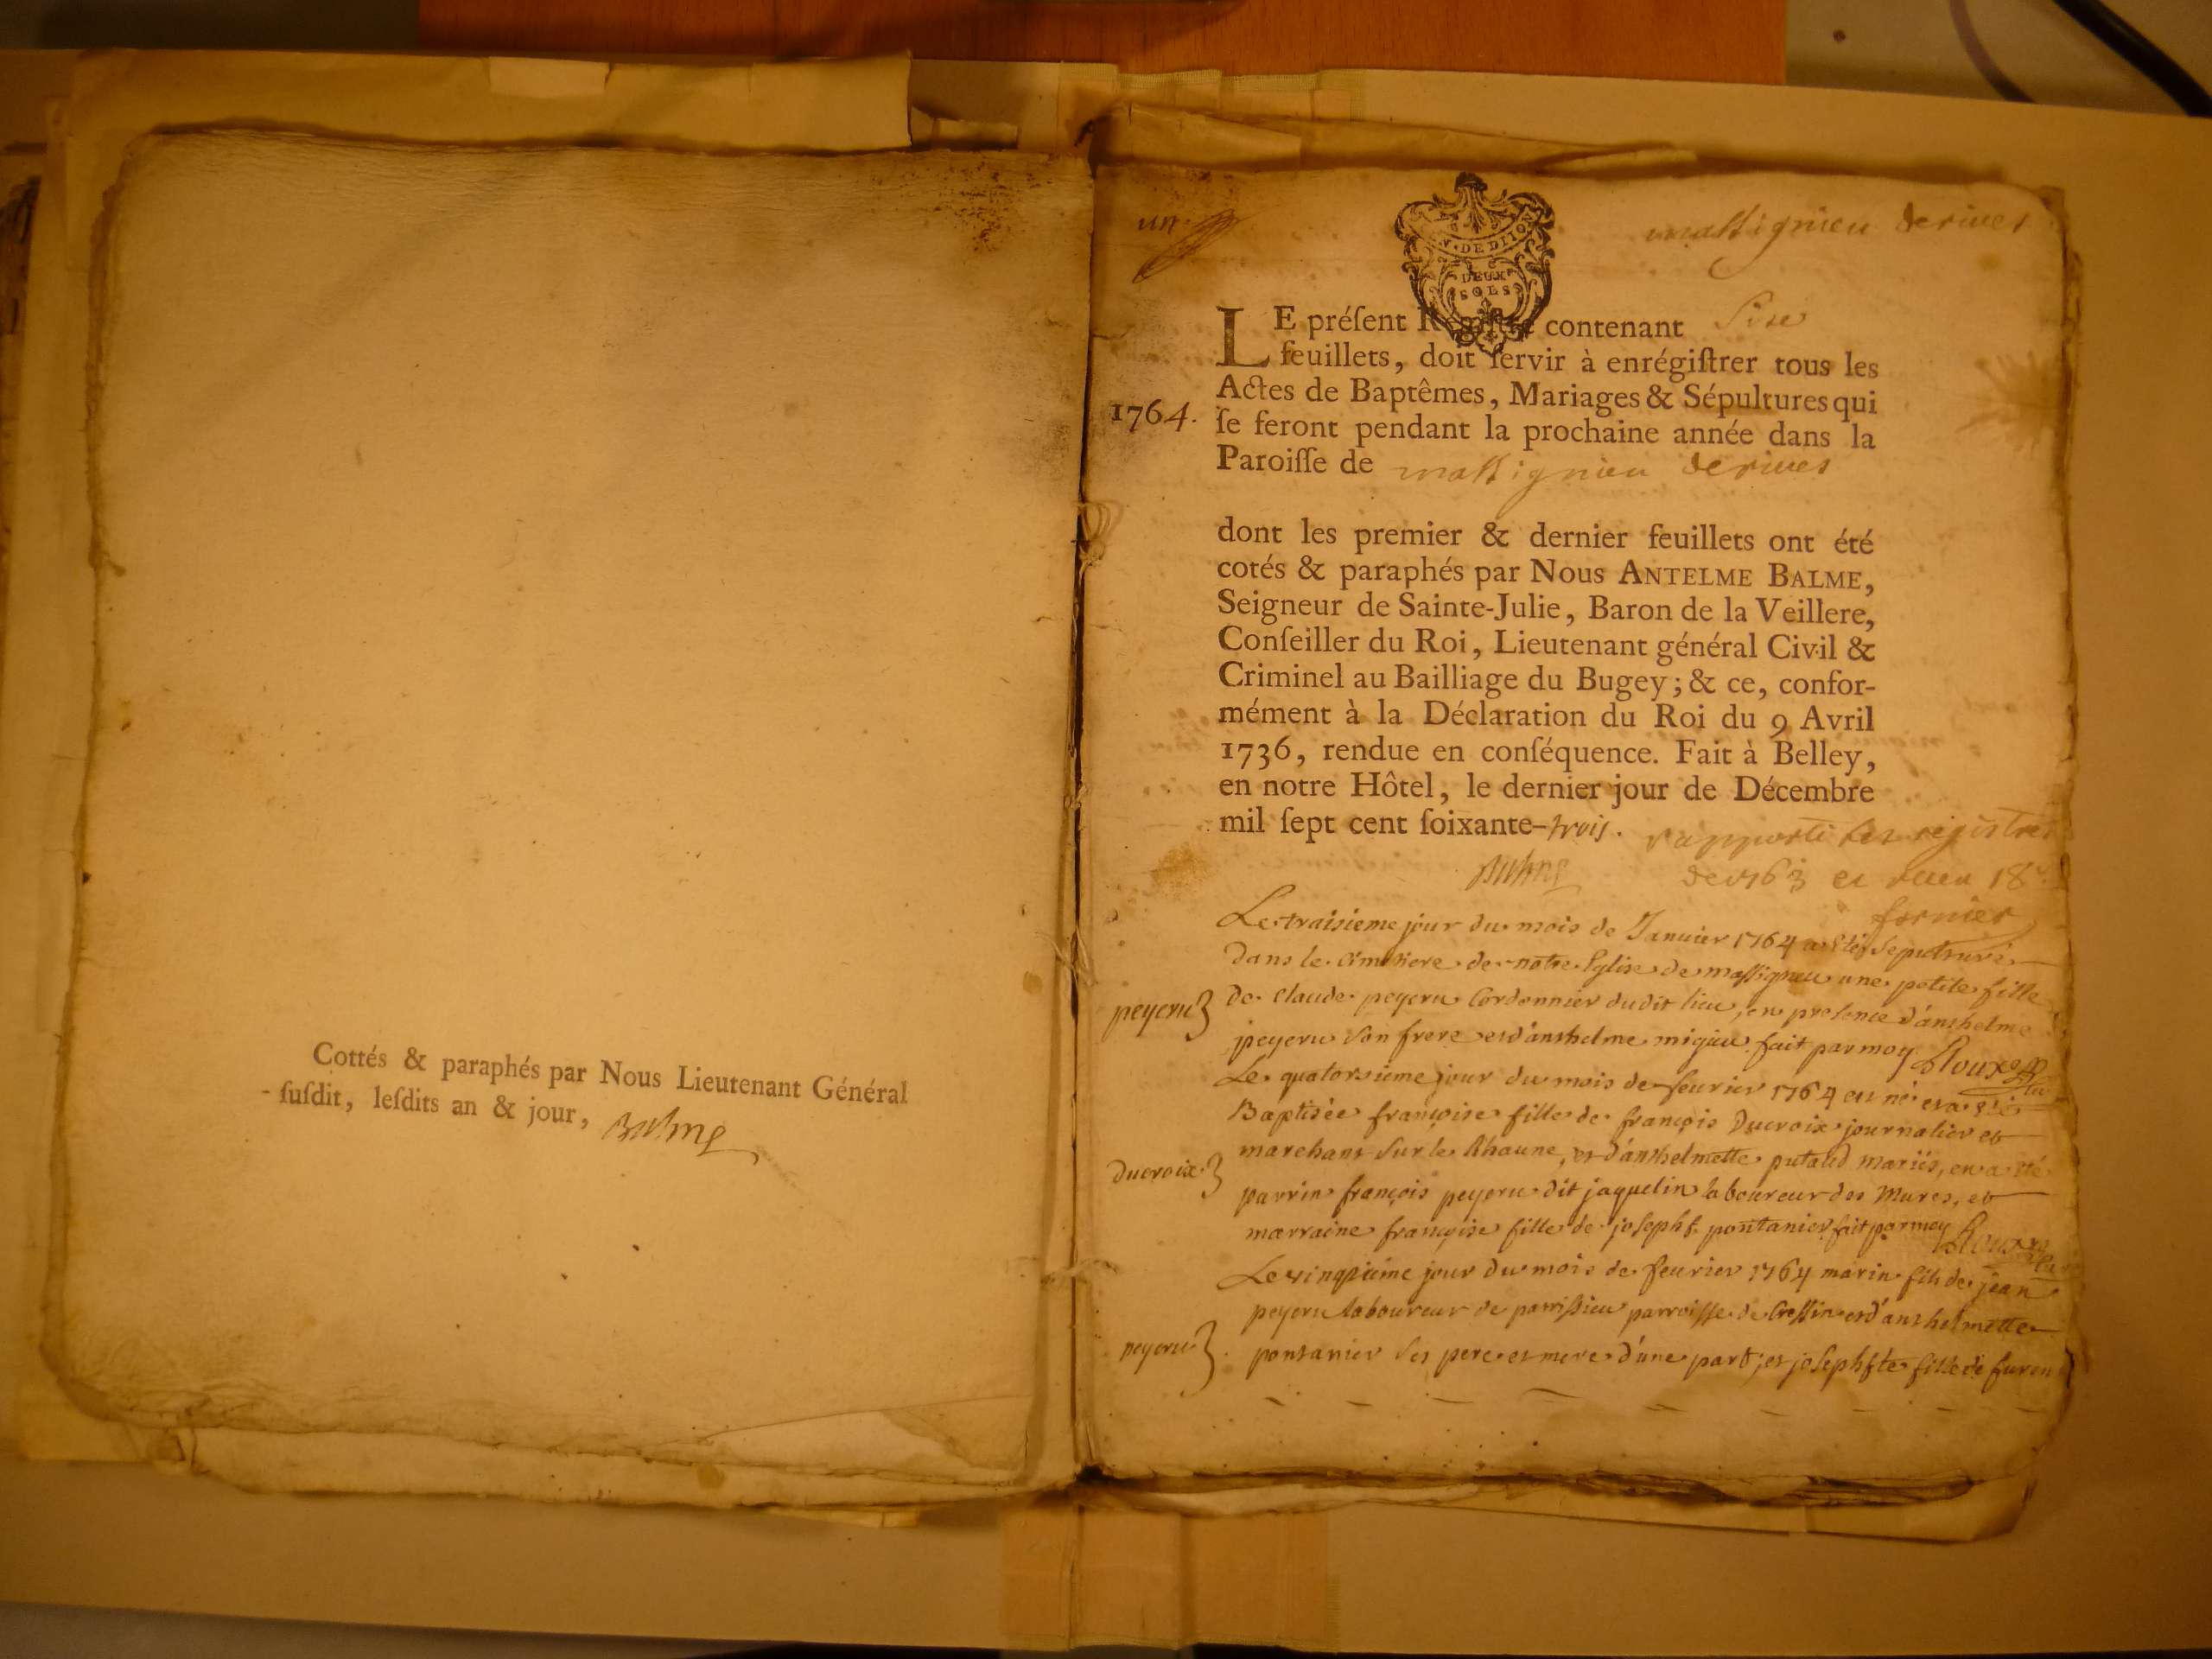 Cottés & paraphés par Nous Lieutenant Général
- ſuſdit, leſdits an & jour, Balme
un.
N. DE DIJON
DEUX
SOLS
massignieu derives
LE préſent Regiſtre contenant Sixe
feuillets, doit ſervir à enrégiſtrer tous les
Actes de Baptêmes, Mariages & Sépultures qui
1764. ſe feront pendant la prochaine année dans la
Paroiſſe de massignieu derives
dont les premier & dernier feuillets ont été
cotés & paraphés par Nous ANTELME BALME,
Seigneur de Sainte-Julie, Baron de la Veillere,
Conſeiller du Roi, Lieutenant général Civil &
Criminel au Bailliage du Bugey; & ce, confor-
mément à la Déclaration du Roi du 9 Avril
1736, rendue en conſéquence. Fait à Belley,
en notre Hôtel, le dernier jour de Décembre
mil ſept cent ſoixante-trois.
Balme
rapporté les registres
de 1763 et receu 18ˢ.
fornier
Le traisieme jour du mois de Januier 1764 a esté sepulturé
dans le cimetiere de notre Eglise de massignieu une petite fille
peyeru de claude peyeru Cordonnier dudit lieu, en presence d'anthelme
peyeru son frere et d'anthelme migieu. fait par moy Roux
Le quatorsieme jour du mois de feurier 1764 est né et a esté
Baptisée françoise fille de françois Ducroix journalier et
marchant sur le Rhaune, et d'anthelmette putaud mariés, en a esté
ducroix parrin françois peyeru dit jaquelin laboureur des Mures, et
marraine françoise fille de josephf. pontanier fait par moy Roux
Le vingtieme jour du mois de feurier 1764 marin fils de jean
peyeru laboureur de parrissieu parroisse de Cressin et d'anthelmette
peyeru pontanier ses pere et mere d'une part; et josephfte fille de